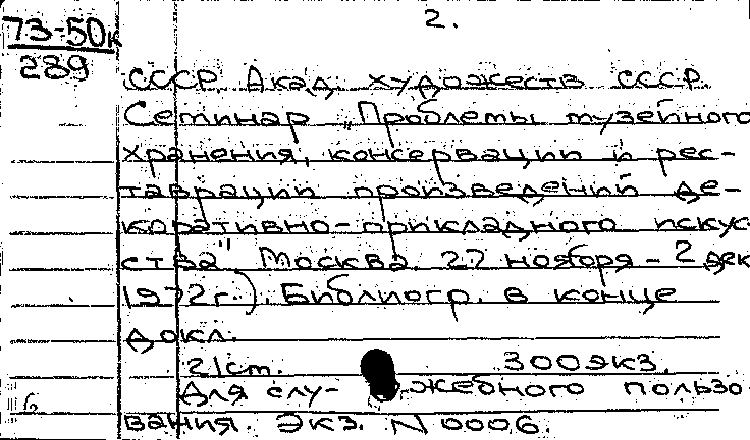 2.
73-50к
289
СССР. Акад. художеств СССР.
Семинар „Проблемы музейного
хранения, консервации и рес-
таврации произведений де-
коративно-прикладного искус-
ства" Москва. 27 ноября - 2 дек
1972г.). Библиогр. в конце
докл.
21ст. 300экз.
Для слу- жебного пользо
вания. Экз. N 0006.